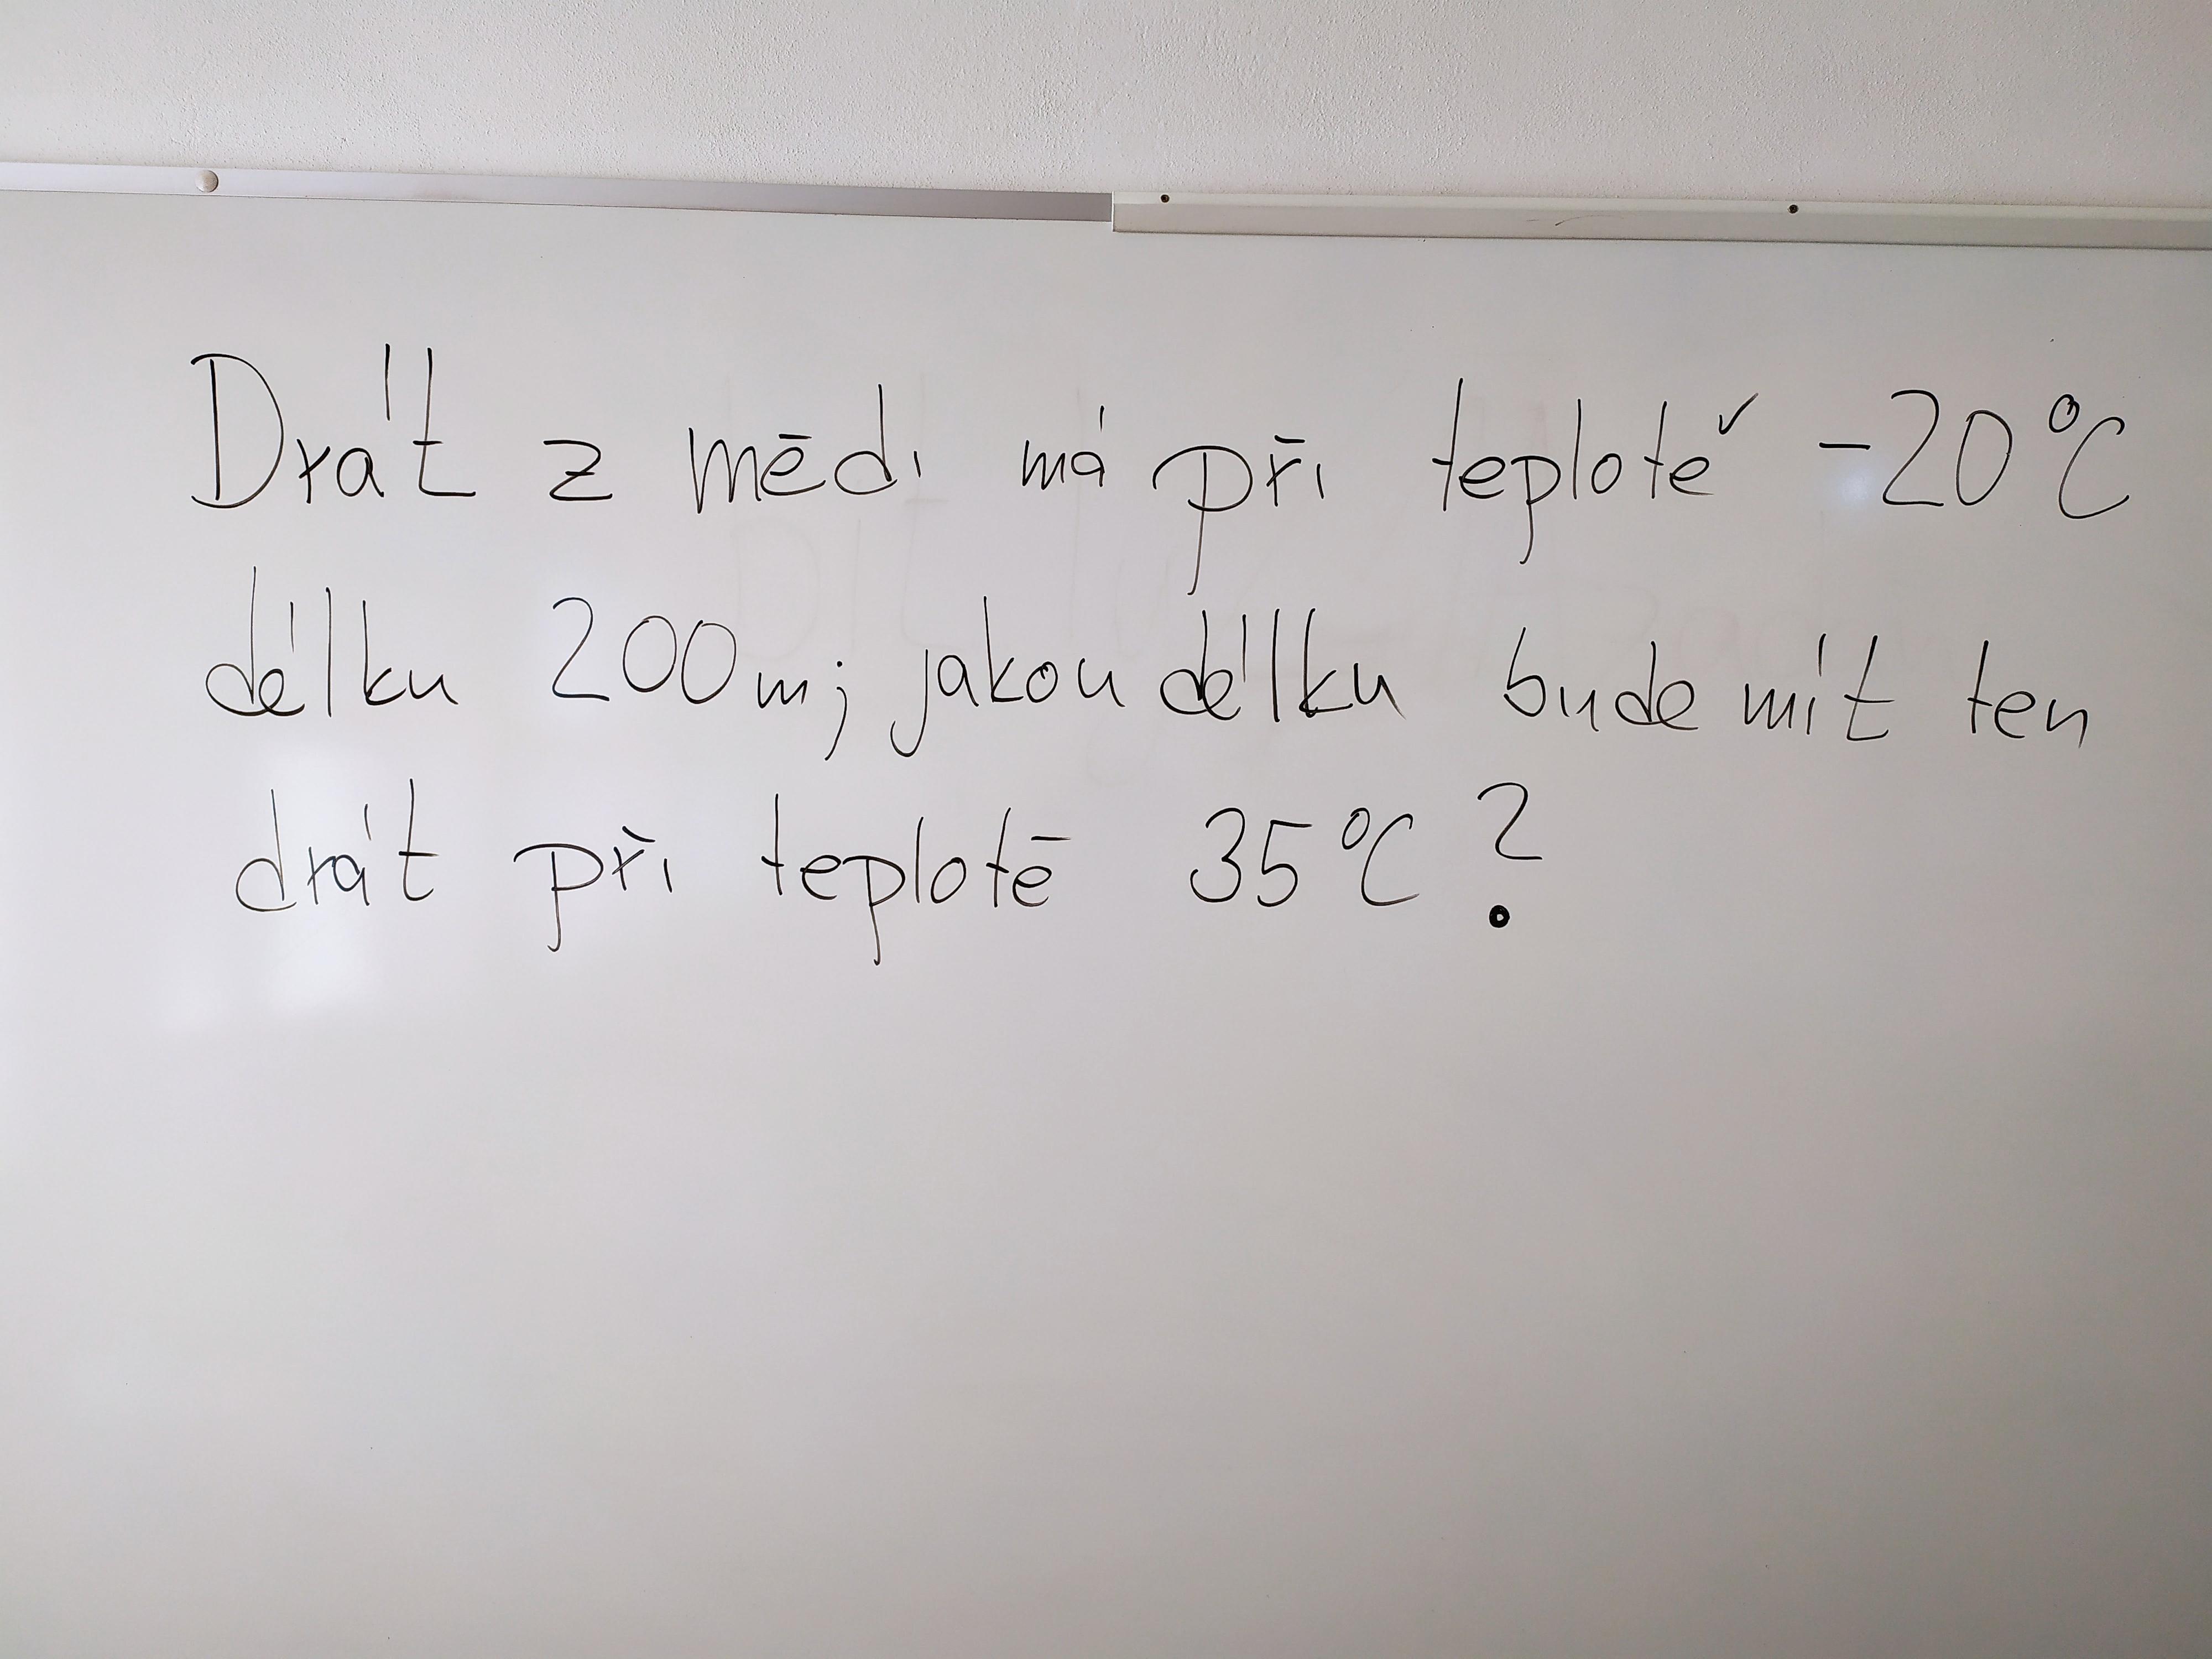 Drát z mědi má při teplotě -20°C
délku 200m; jakou délku bude mít ten
drát při teplotě 35°C?